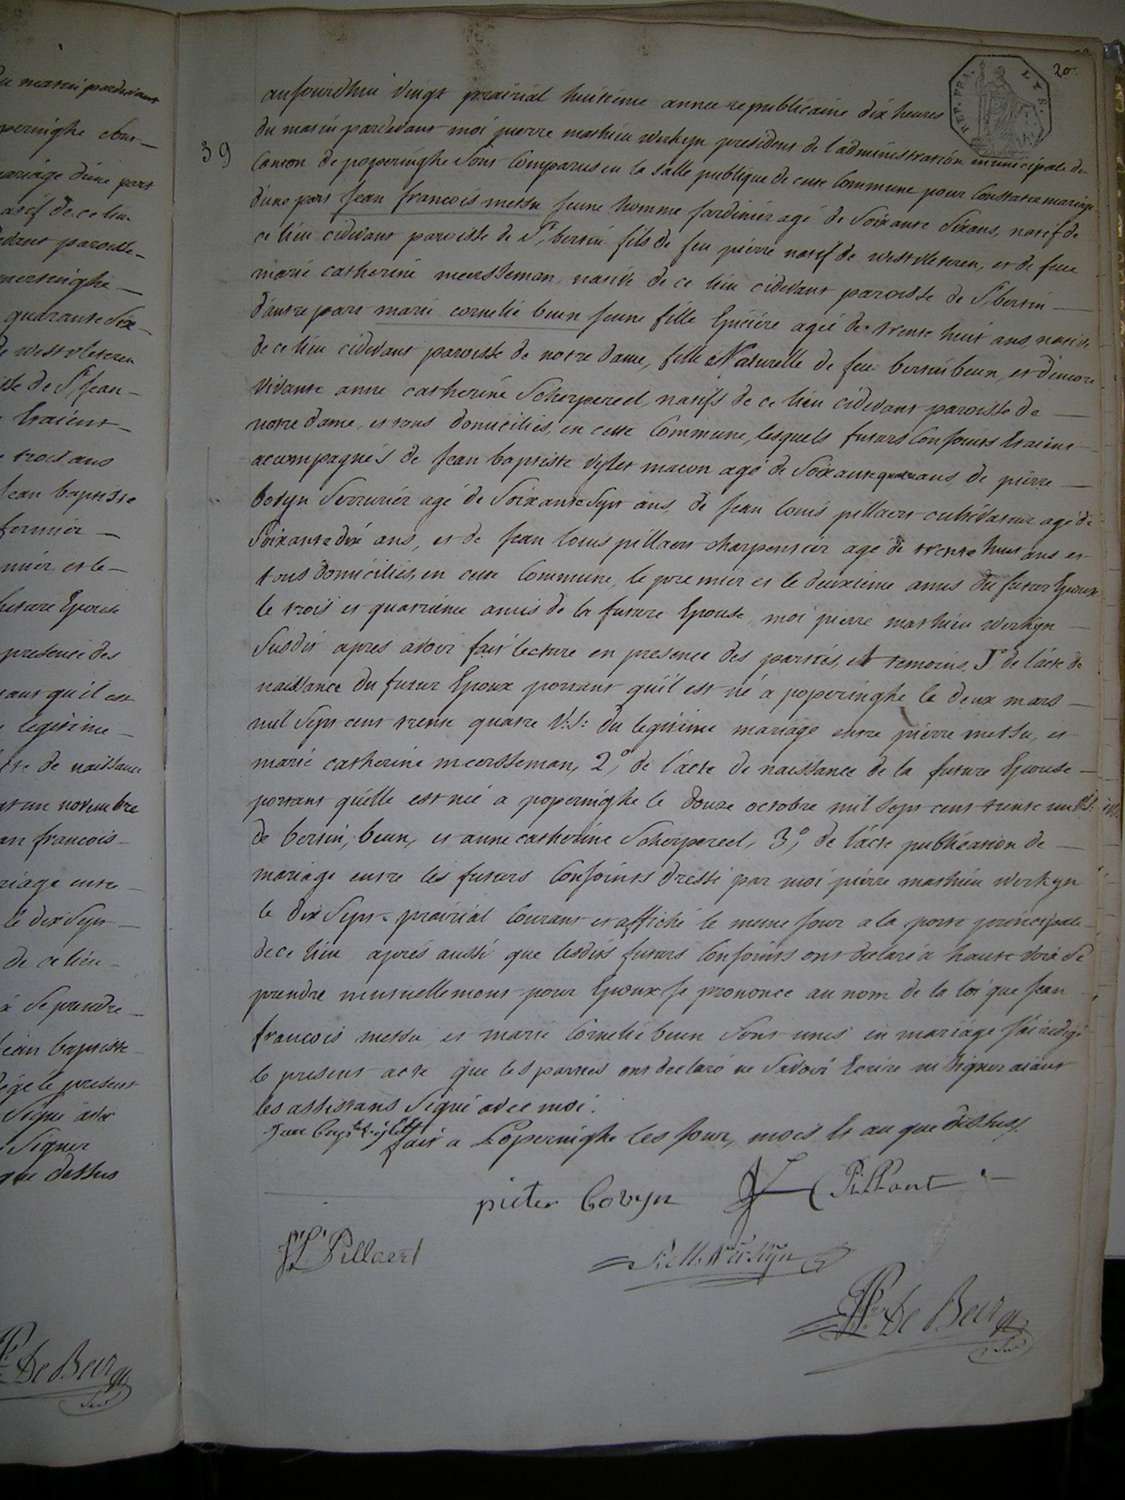 du matin pardevant
poperinghe
mariage d'une part
natif de ce lieu
cidevant paroisse
quarante six
de westvleteren
de St Jean
étaient
trois ans
Jean baptiste
fermier
et le
future Epouse
presence des
portant qu'il est
legitime
acte de naissance
novembre
Jean francois
mariage entre
le dix sept
de ce lieu
à se prendre
Jean baptiste
redigé le present
signé avec
signer
que dessus
De Beir
20
REP. FRA. LYS
39
aujourdhui vingt prairial huitieme annee republicaine dix heures
du matin pardevant moi pierre mathieu werkyn president de l'administration municipale du
Canton de poperinghe sont Comparus en la salle publique de cette Commune pour Constater mariage
d'une part Jean francois metsu jeune homme jardinier agé de soixante six ans, natif de
ce lieu cidevant paroisse de St bertin fils de feu pierre natif de westvleteren, et de feue
marie catherine meersseman native de ce lieu cidevant paroisse de St bertin
d'autre part marie cornelie beun jeune fille Epiciere agée de trente huit ans native
de ce lieu cidevant paroisse de notre dame, fille Naturelle de feu bertin beun, et d'encore
vivante anne catherine Scherpereel, natifs de ce lieu cidevant paroisse de
notre dame, et tous domiciliés, en cette Commune, lesquels futurs Conjoints étaient
acompagnés de Jean baptiste macon agé de soixante quatre ans de pierre
Covyn Serrurier agé de soixante sept ans, de Jean louis pillaert cultivateur agé de
soixante dix ans, et de Jean louis pillaert charpentier agé de trente huit ans et
tous domiciliés, en cette Commune, le premier et le deuxieme amis du futur Epoux
le trois et quatrieme amis de la future Epouse, moi pierre mathieu werkyn
Susdit apres avoir fait lecture en presence des parties, et temoins, 1° de l'acte de
naissance du futur Epoux portant qu'il est né a poperinghe le deux mars
mil sept cent trente quatre V:S: du legitime mariage entre pierre metsu, et
marie catherine meersseman, 2° de l'acte de naissance de la future Epouse
portant qu'elle est née a poperinghe le douze octobre mil sept cent trente un V:S:
de bertin, beun, et anne catherine Scherpereel, 3° de l'acte publication de
mariage entre les futurs Conjoints dressé par moi pierre mathieu werkyn
le dix sept prairial Courant et affiché le meme jour a la porte principale
de ce lieu, aprés aussi que lesdits futurs Conjoints ont declaré a haute voix se
prendre mutuellement pour Epoux, je prononce au nom de la loi que Jean
francois metsu et marie Cornelie beun sont unis en mariage j'ai redigé
le present acte que les parties ont declaré ne savoir Ecrire ni signer aiant
les assistans signé avec moi.
fait a Poperinghe les jour, mois Et an que dessus
Jan Bapte
pieter Covyn J L Pillaert
J: L: Pillaert
P: M: Werkyn
De Beir